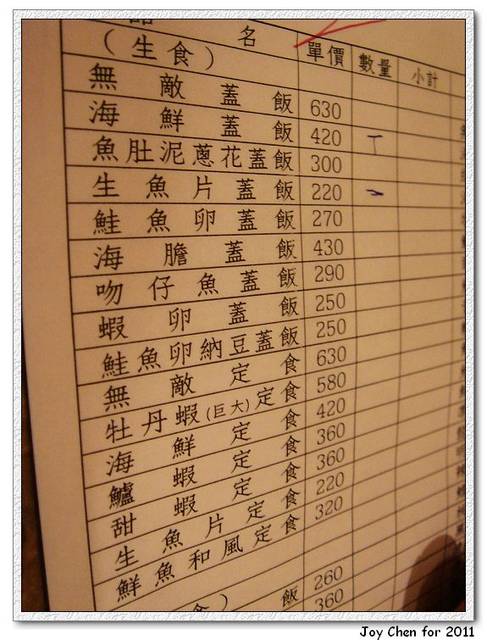 名 單價 數量 小計
(生食)
無敵蓋飯 630
海鮮蓋飯 420
魚肚泥蔥花蓋飯 300
生魚片蓋飯 220
鮭魚卵蓋飯 270
海膽蓋飯 430
吻仔魚蓋飯 290
蝦卵蓋飯 250
鮭魚卵納豆蓋飯 250
無敵定食 630
牡丹蝦(巨大)定食 580
海鮮定食 420
鱸蝦定食 360
甜蝦定食 360
生魚片定食 220
鮮魚和風定食 320
食)
飯 260
360
Joy Chen for 2011